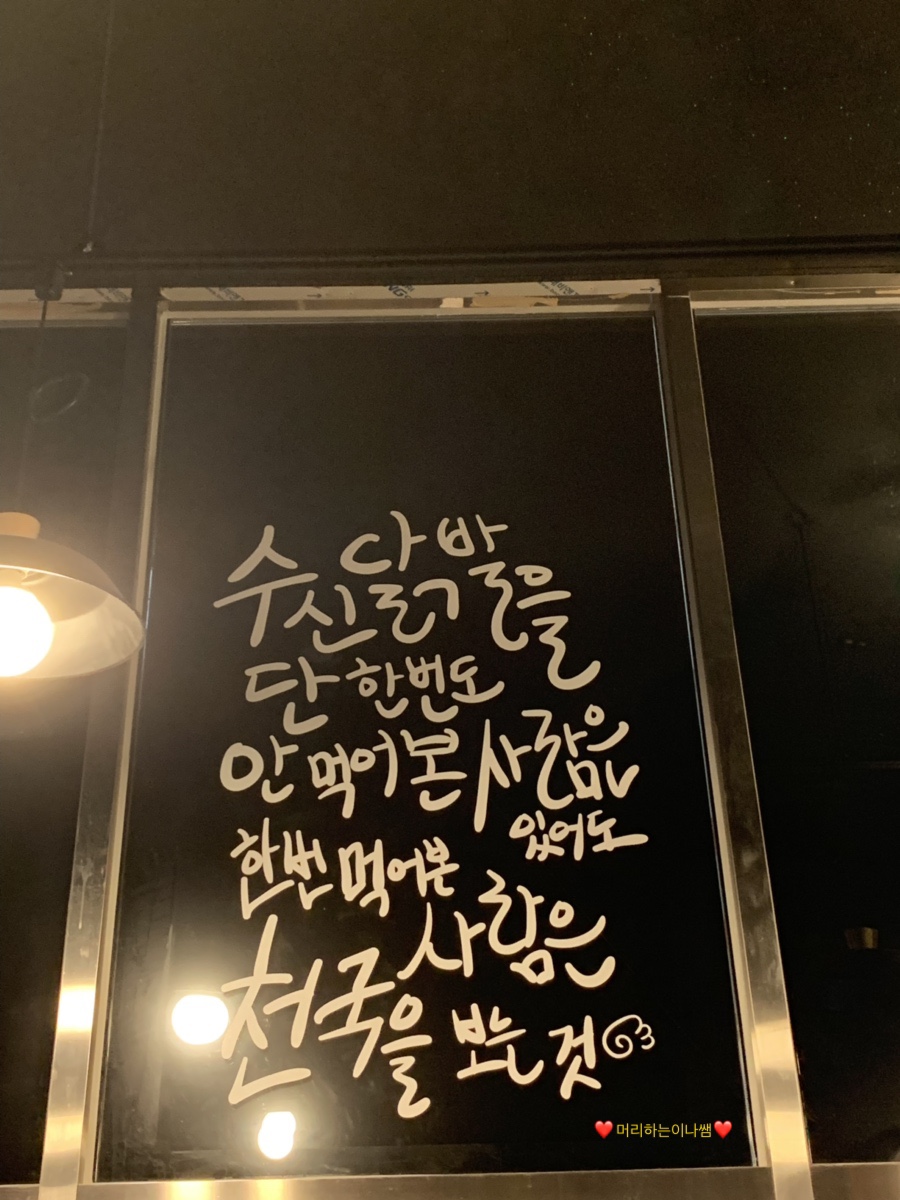 수신닭발을
단 한번도
안 먹어본 사람은
있어도
한번 먹어본
사람은
천국을 보는 것
❤️머리하는이나쌤❤️